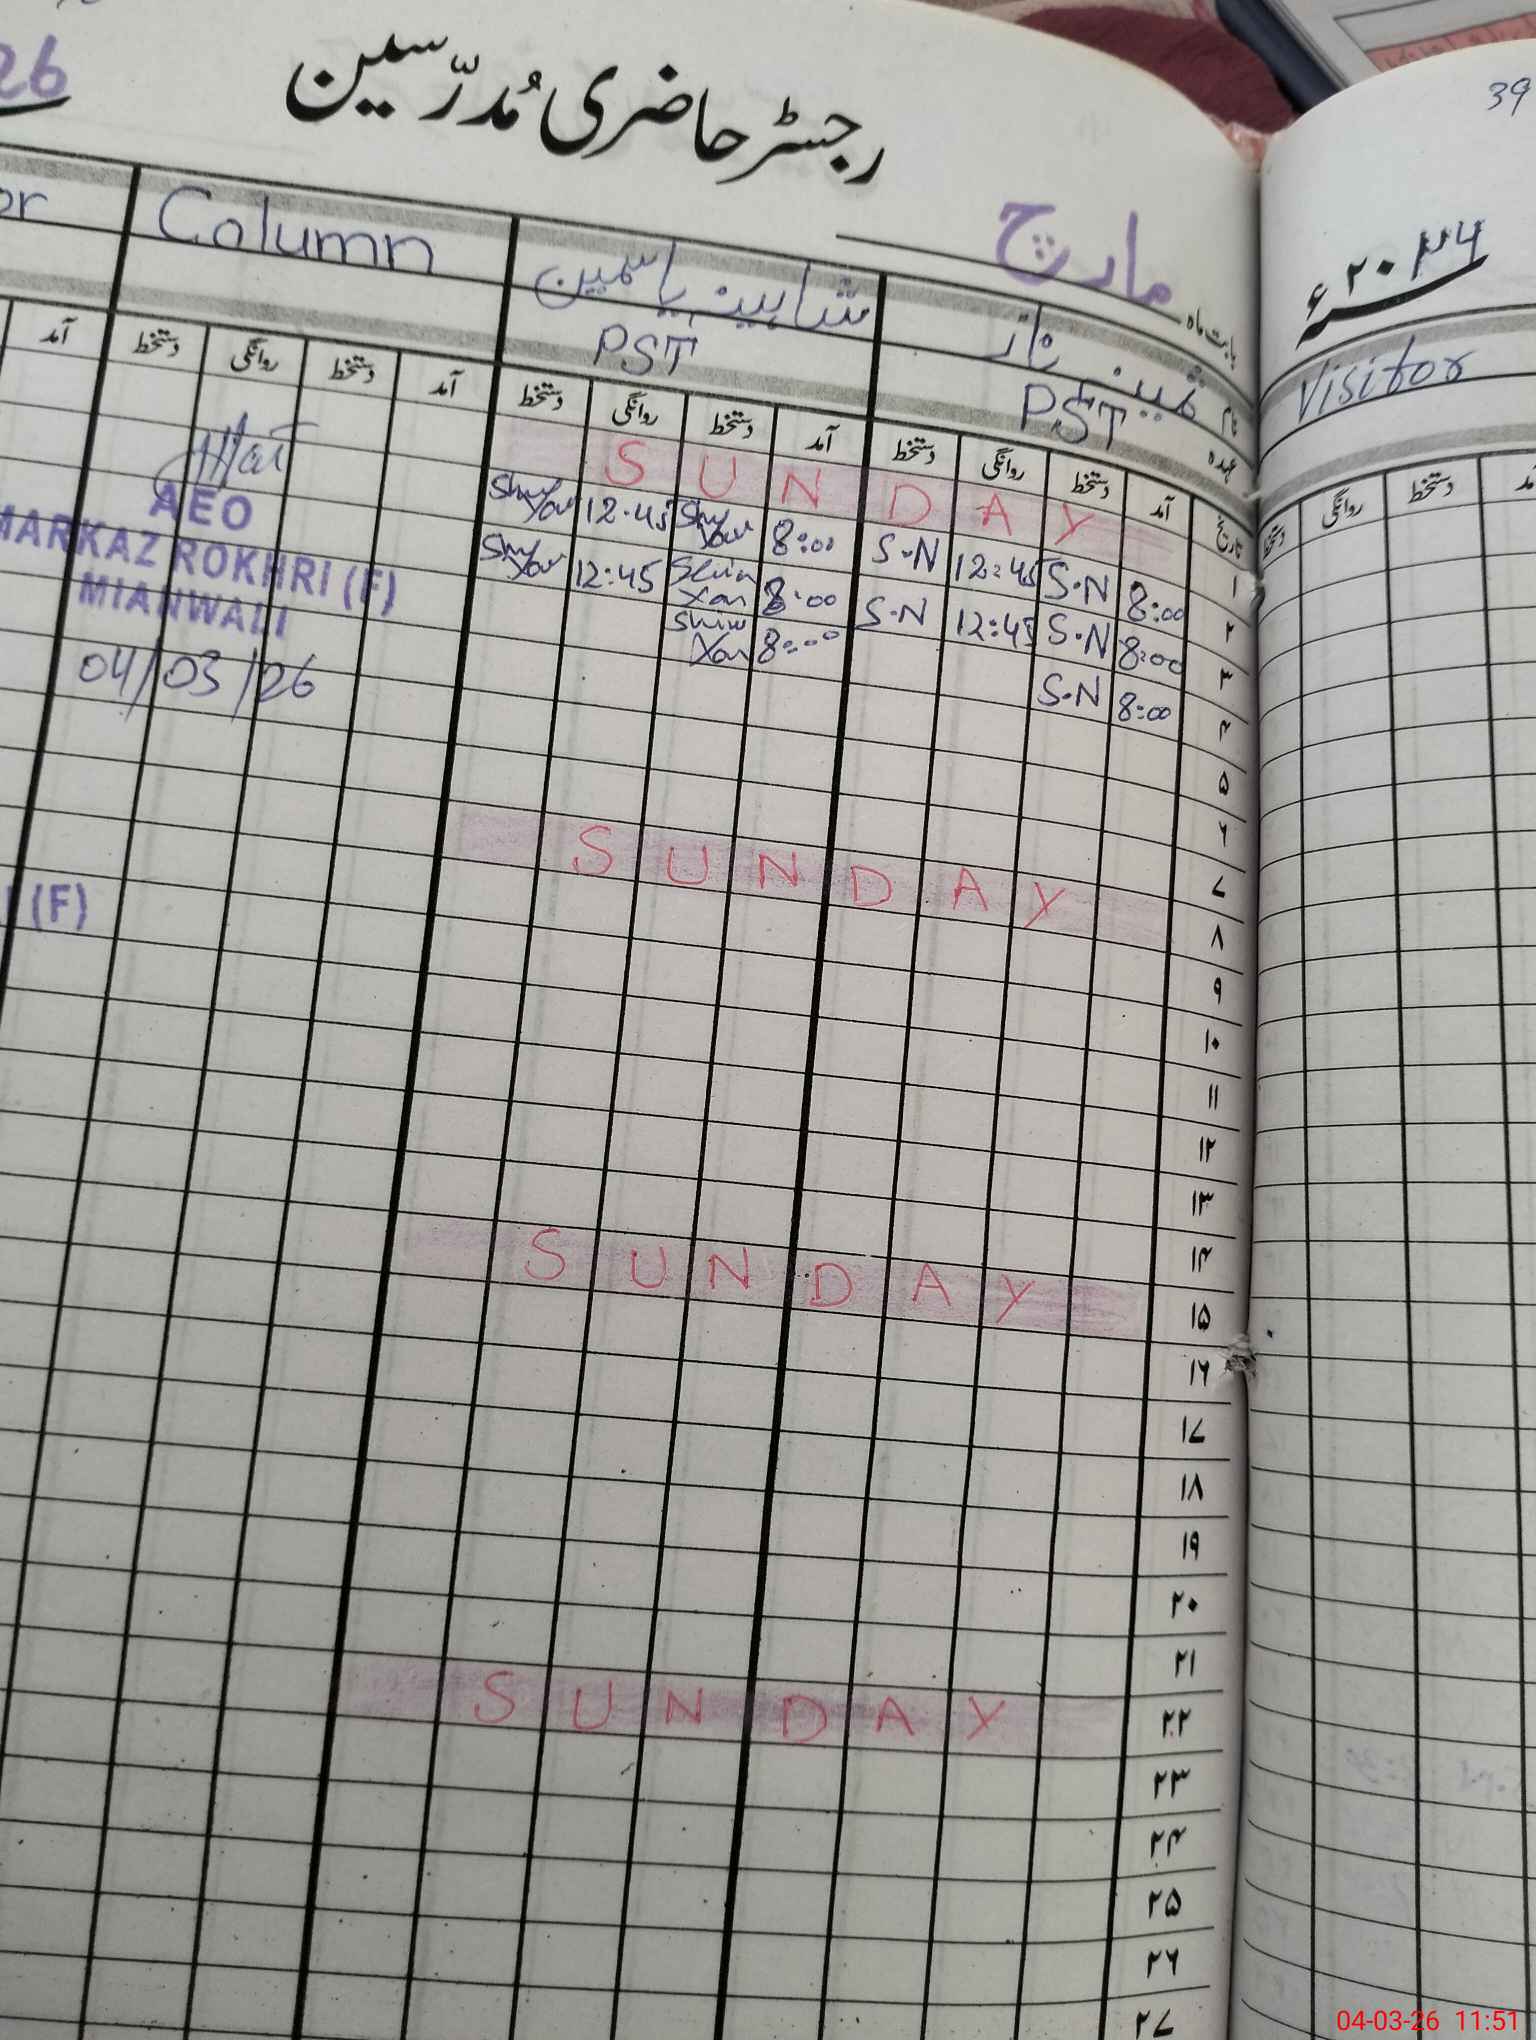 26
رجسٹر حاضری مُدرّسین
39
بابت ماہ مارچ
۲۰۲۶ء
or Column
نام ثمینہ ناز
شاہینہ یاسمین
Visitor
عہدہ PST
PST
تاریخ آمد دستخط روانگی دستخط آمد دستخط روانگی دستخط آمد دستخط روانگی دستخط آمد
دستخط روانگی دستخط آمد
۱ SUNDAY
۲ 8:00 S.N 12:45 S.N 8:00 12.45
۳ 8:00 S.N 12:45 S.N 8:00 12:45
۴ 8:00 S.N 8:00
۵
۶
۷
۸ SUNDAY
۹
۱۰
۱۱
۱۲
۱۳
۱۴
۱۵ SUNDAY
۱۶
۱۷
۱۸
۱۹
۲۰
۲۱
۲۲ SUNDAY
۲۳
۲۴
۲۵
۲۶
۲۷
AEO
MARKAZ ROKHRI (F)
MIANWALI
04/03/26
(F)
04-03-26 11:51